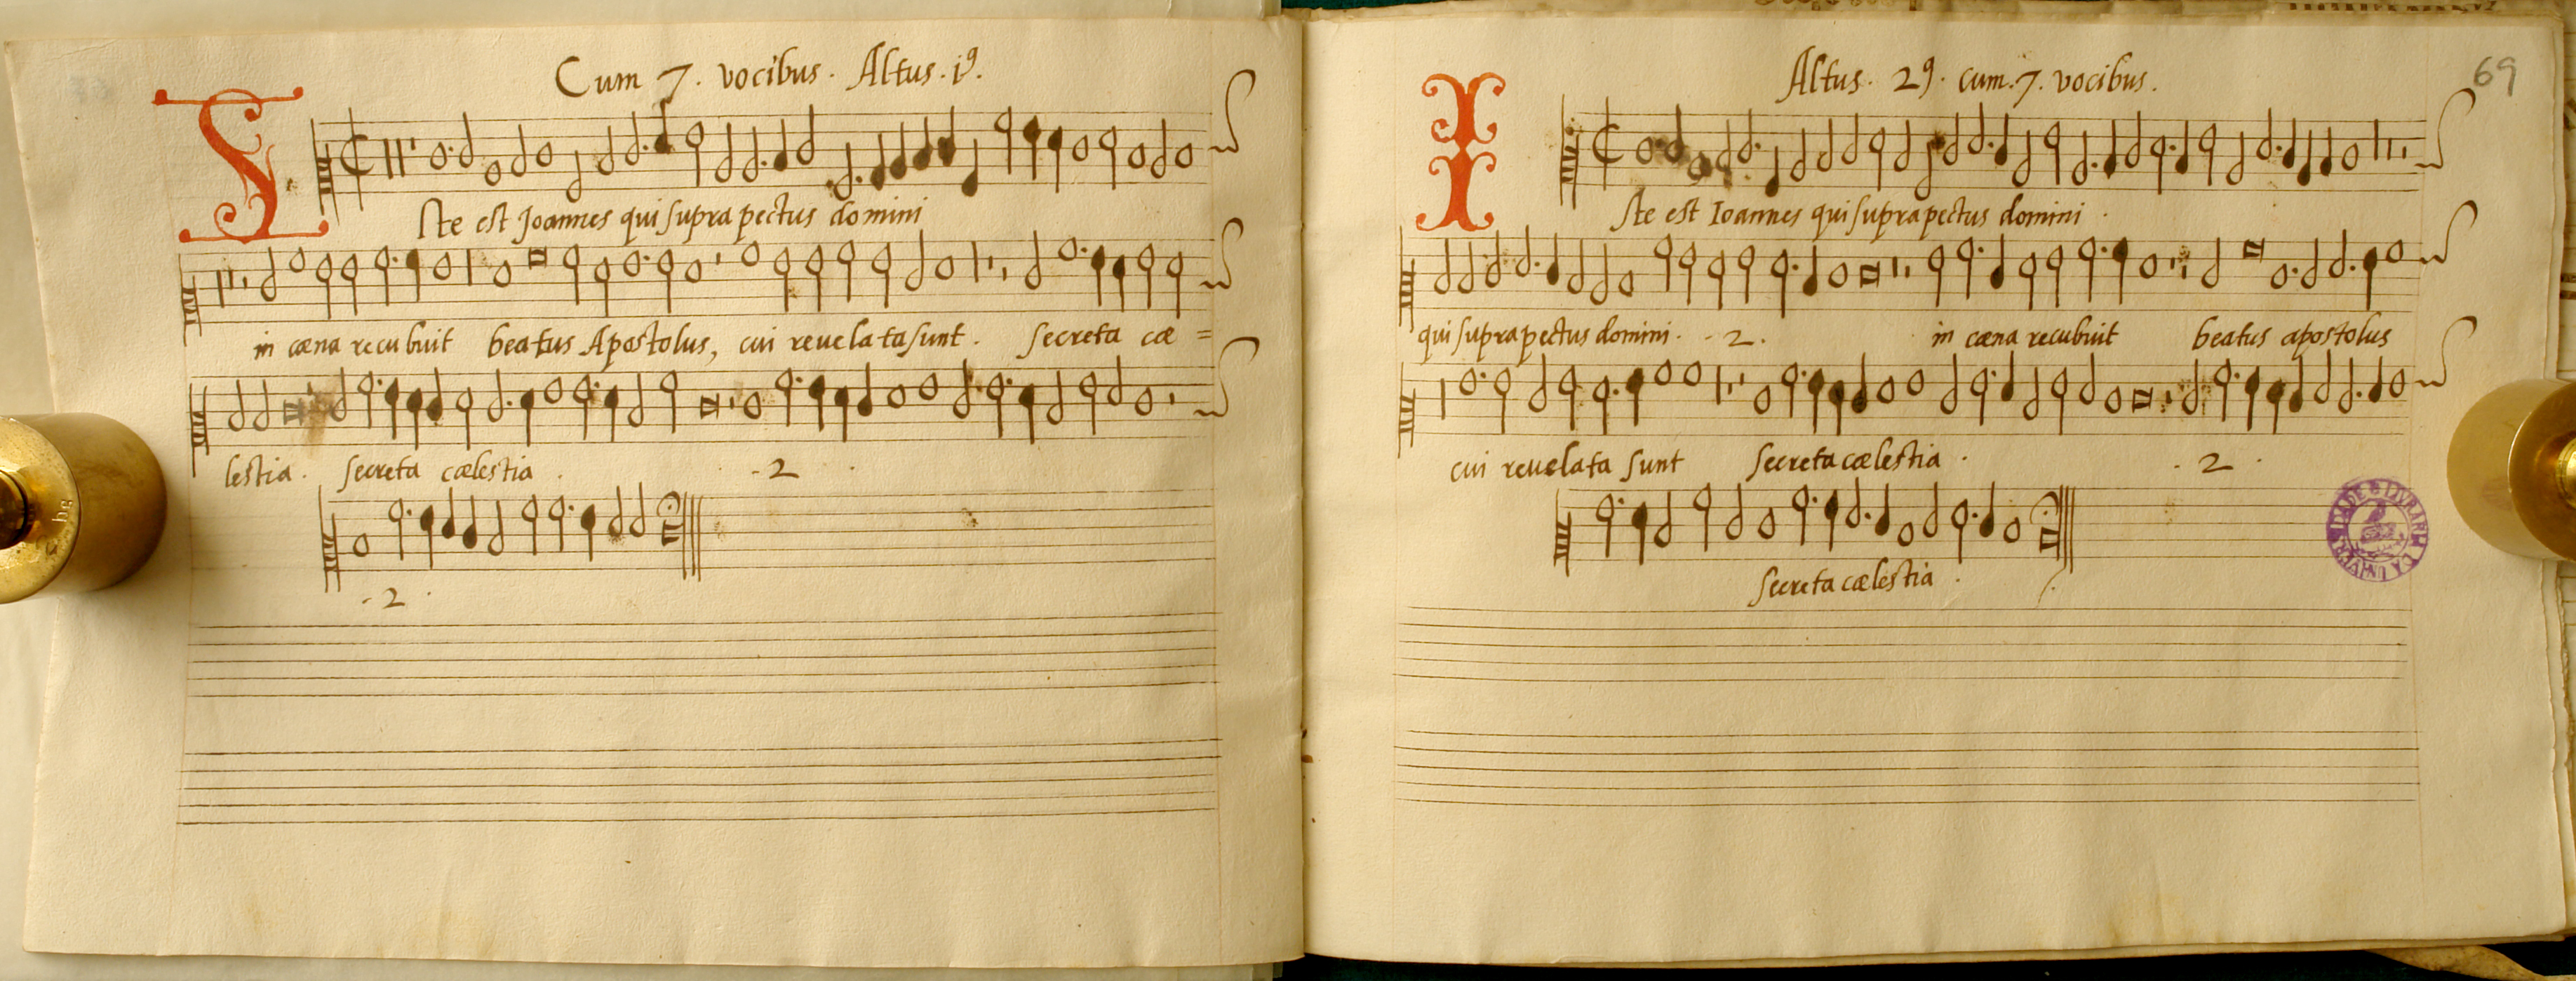 Cum 7. vocibus. Altus. i9.
Iste est Joannes qui supra pectus domini
in cæna recubuit beatus Apostolus, cui reuelata sunt. secreta cæ =
lestia. secreta cælestia . - 2 .
- 2 .
69
Altus. 29. cum. 7. vocibus.
Iste est Ioannes qui supra pectus domini .
qui supra pectus domini. - 2. in cæna recubuit beatus apostolus
cui reuelata sunt secreta cælestia . . 2 .
secreta cælestia .